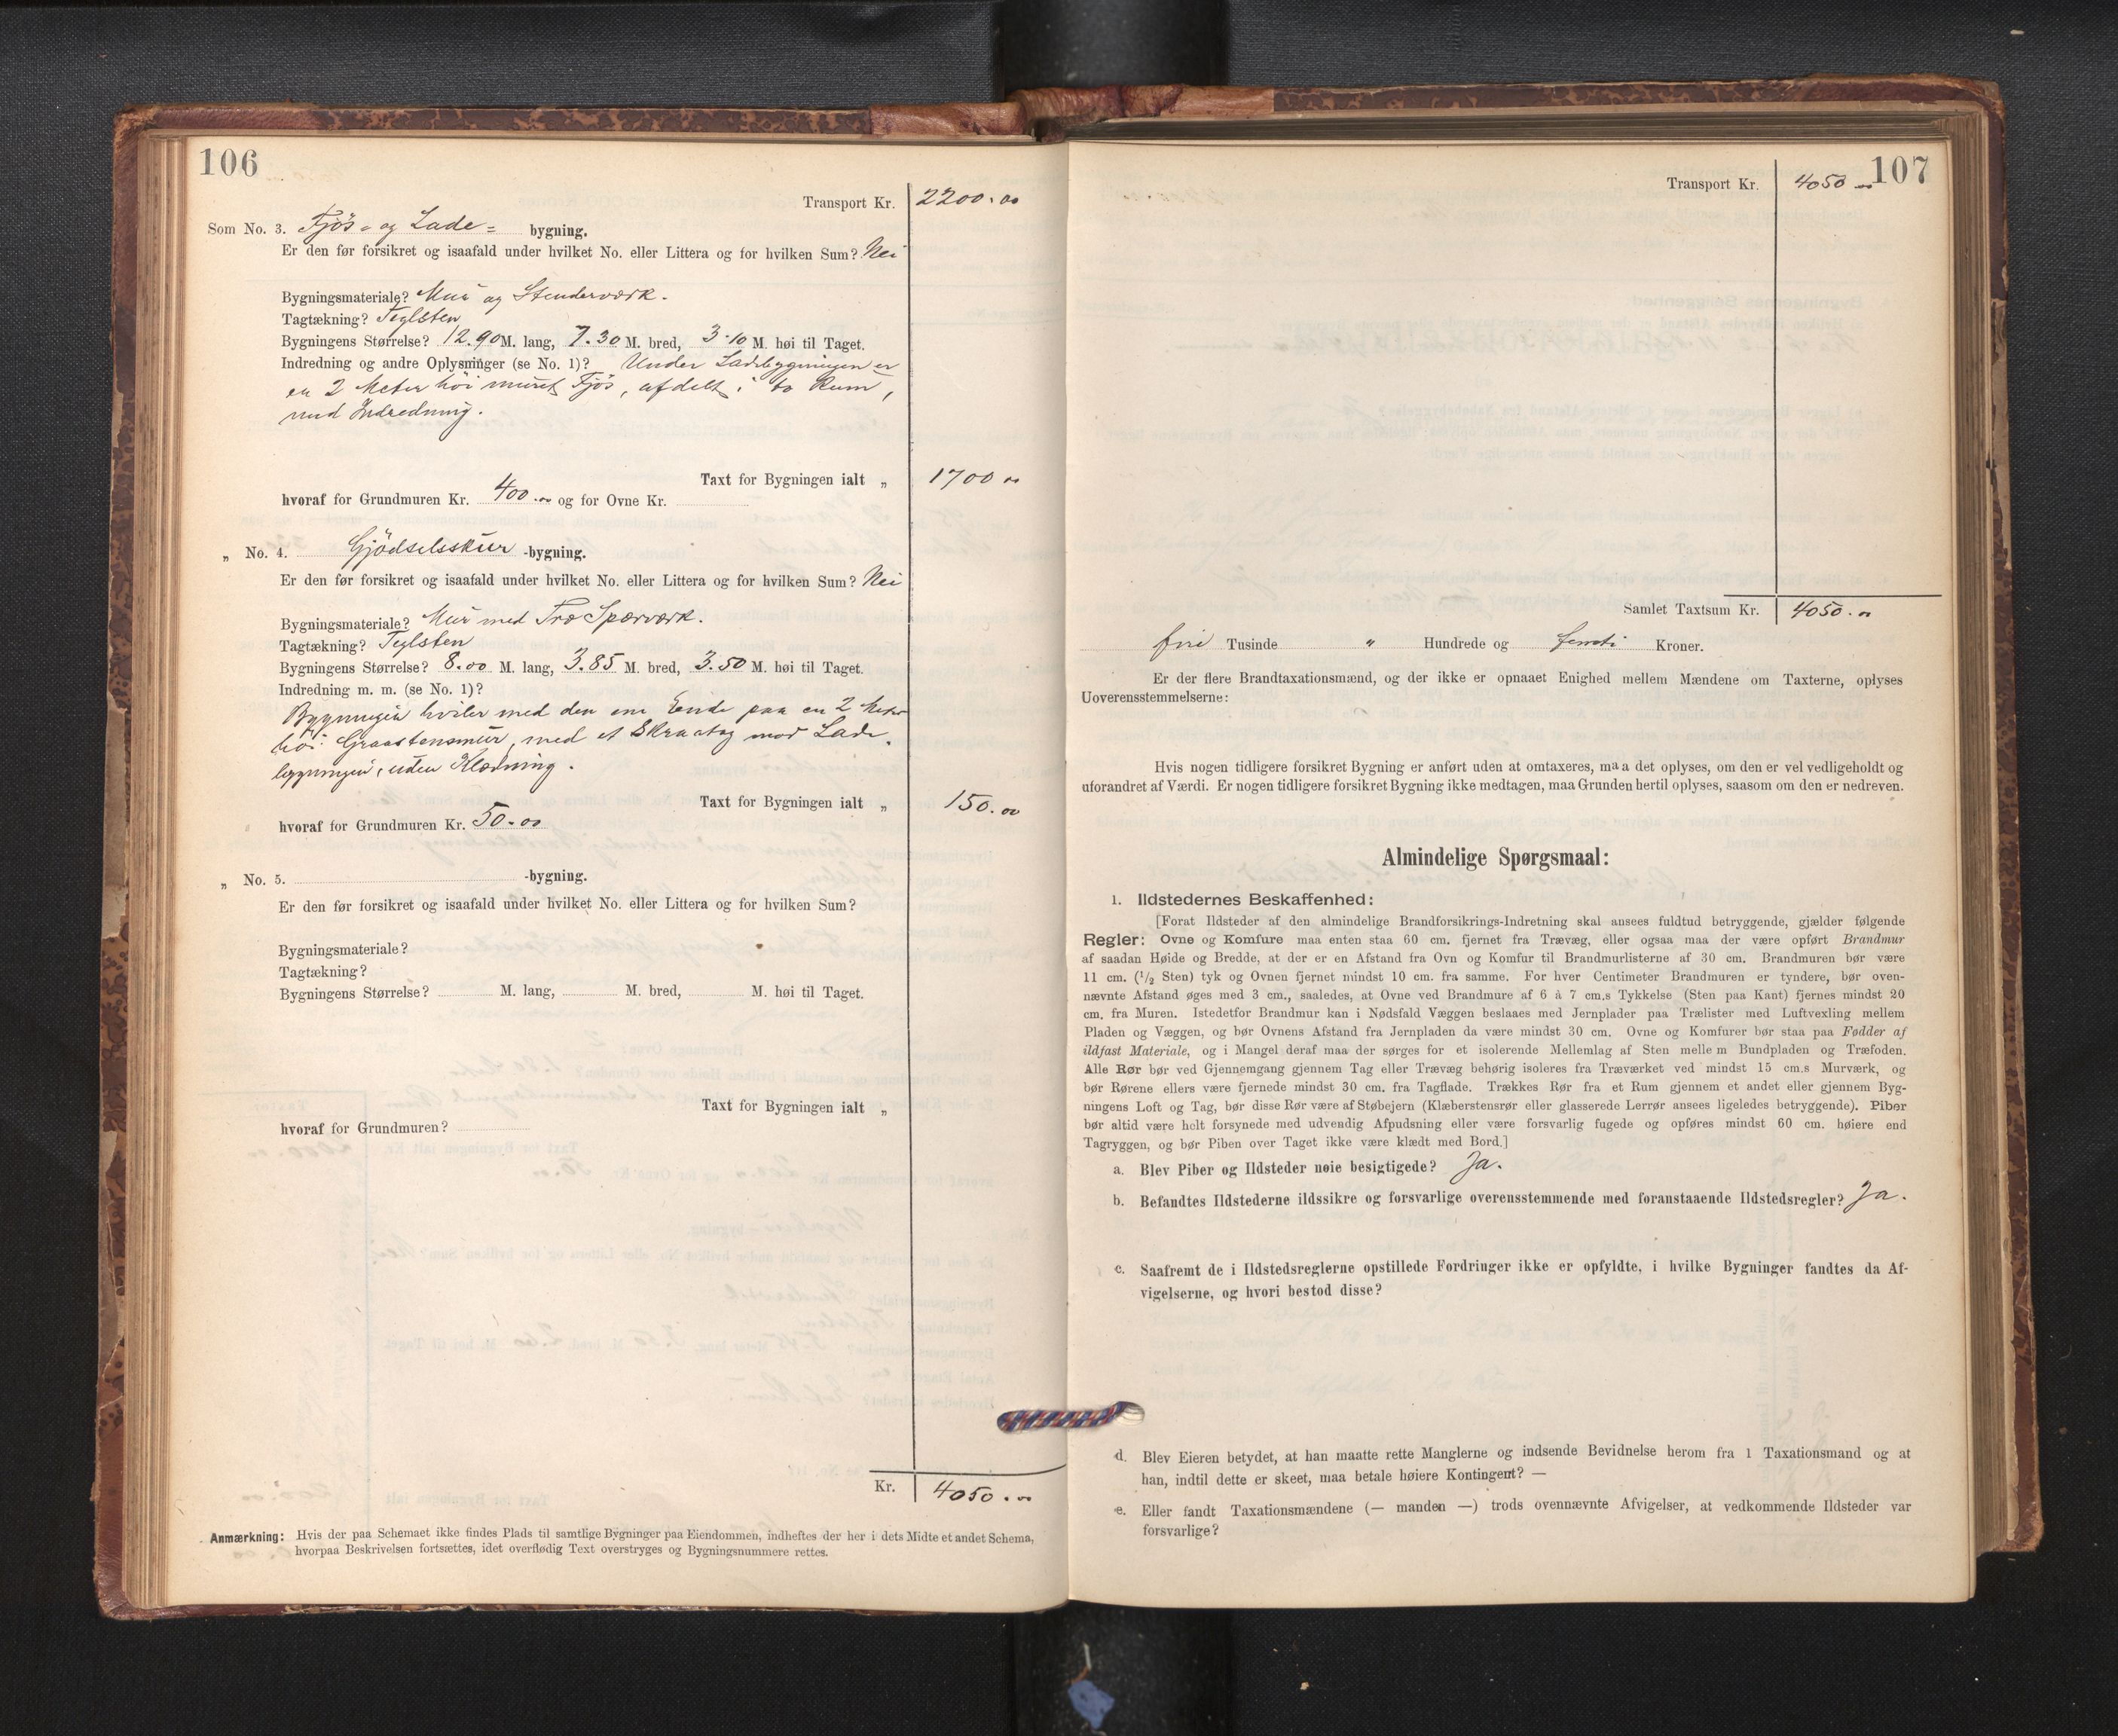 106
Transport Kr. 2200.00
Som No. 3. Fjös- og Lade- bygning.
Er den før forsikret og isaafald under hvilket No. eller Littera og for hvilken Sum? Nei
Bygningsmateriale? Mur og Stenderværk.
Tagtækning? Teglsten
Bygningens Størrelse? 12.90 M. lang, 7.30 M. bred, 3.10 M. høi til Taget.
Indredning og andre Oplysninger (se No. 1)? Under Ladebygningen er
en 2 Meter höi muret Fjös, afdelt i to Rum,
med Indredning.
Taxt for Bygningen ialt „ 1700 00
hvoraf for Grundmuren Kr. 400.00 og for Ovne Kr.
„ No. 4. Gjödselsskur -bygning.
Er den før forsikret og isaafald under hvilket No. eller Littera og for hvilken Sum? Nei
Bygningsmateriale? Mur med Træ Spærværk.
Tagtækning? Teglsten
Bygningens Størrelse? 8.00 M. lang, 3.85 M. bred, 3.50 M. høi til Taget.
Indredning m. m. (se No. 1)?
Bygningen hviler med den ene Ende paa en 2 Meter
höi Graastensmur, med et Skraatag mod Lade-
bygningen, uden Klædning.
Taxt for Bygningen ialt „ 150.00
hvoraf for Grundmuren Kr. 50.00
„ No. 5. -bygning.
Er den før forsikret og isaafald under hvilket No. eller Littera og for hvilken Sum?
Bygningsmateriale?
Tagtækning?
Bygningens Størrelse? M. lang, M. bred, M. høi til Taget.
Taxt for Bygningen ialt „
hvoraf for Grundmuren?
Kr. 4050.00
Anmærkning: Hvis der paa Schemaet ikke findes Plads til samtlige Bygninger paa Eiendommen, indheftes der her i dets Midte et andet Schema,
hvorpaa Beskrivelsen fortsættes, idet overflødig Text overstryges og Bygningsnummere rettes.
107
Transport Kr. 4050 00
Samlet Taxtsum Kr. 4050.00
fire Tusinde " Hundrede og femti Kroner.
Er der flere Brandtaxationsmænd, og der ikke er opnaaet Enighed mellem Mændene om Taxterne, oplyses
Uoverensstemmelserne:
Hvis nogen tidligere forsikret Bygning er anført uden at omtaxeres, maa det oplyses, om den er vel vedligeholdt og
uforandret af Værdi. Er nogen tidligere forsikret Bygning ikke medtagen, maa Grunden hertil oplyses, saasom om den er nedreven.
Almindelige Spørgsmaal:
1. Ildstedernes Beskaffenhed:
[Forat Ildsteder af den almindelige Brandforsikrings-Indretning skal ansees fuldtud betryggende, gjælder følgende
Regler: Ovne og Komfure maa enten staa 60 cm. fjernet fra Trævæg, eller ogsaa maa der være opført Brandmur
af saadan Høide og Bredde, at der er en Afstand fra Ovn og Komfur til Brandmurlisterne af 30 cm. Brandmuren bør være
11 cm. (1/2 Sten) tyk og Ovnen fjernet mindst 10 cm. fra samme. For hver Centimeter Brandmuren er tyndere, bør oven-
nævnte Afstand øges med 3 cm., saaledes, at Ovne ved Brandmure af 6 à 7 cm.s Tykkelse (Sten paa Kant) fjernes mindst 20
cm. fra Muren. Istedetfor Brandmur kan i Nødsfald Væggen beslaaes med Jernplader paa Trælister med Luftvexling mellem
Pladen og Væggen, og bør Ovnens Afstand fra Jernpladen da være mindst 30 cm. Ovne og Komfurer bør staa paa Fødder af
ildfast Materiale, og i Mangel deraf maa der sørges for et isolerende Mellemlag af Sten mellem Bundpladen og Træfoden.
Alle Rør bør ved Gjennemgang gjennem Tag eller Trævæg behørig isoleres fra Træværket ved mindst 15 cm.s Murværk, og
bør Rørene ellers være fjernede mindst 30 cm. fra Tagflade. Trækkes Rør fra et Rum gjennem et andet eller gjennem Byg-
ningens Loft og Tag, bør disse Rør være af Støbejern (Klæberstensrør eller glasserede Lerrør ansees ligeledes betryggende). Piber
bør altid være helt forsynede med udvendig Afpudsning eller være forsvarlig fugede og opføres mindst 60 cm. høiere end
Tagryggen, og bør Piben over Taget ikke være klædt med Bord.]
a. Blev Piber og Ildsteder nøie besigtigede? Ja.
b. Befandtes Ildstederne ildssikre og forsvarlige overensstemmende med foranstaaende Ildstedsregler? Ja.
c. Saafremt de i Ildstedsreglerne opstillede Fordringer ikke er opfyldte, i hvilke Bygninger fandtes da Af-
vigelserne, og hvori bestod disse?
d. Blev Eieren betydet, at han maatte rette Manglerne og indsende Bevidnelse herom fra 1 Taxationsmand og at
han, indtil dette er skeet, maa betale høiere Kontingent? —
e. Eller fandt Taxationsmændene (— manden —) trods ovennævnte Afvigelser, at vedkommende Ildsteder var
forsvarlige?